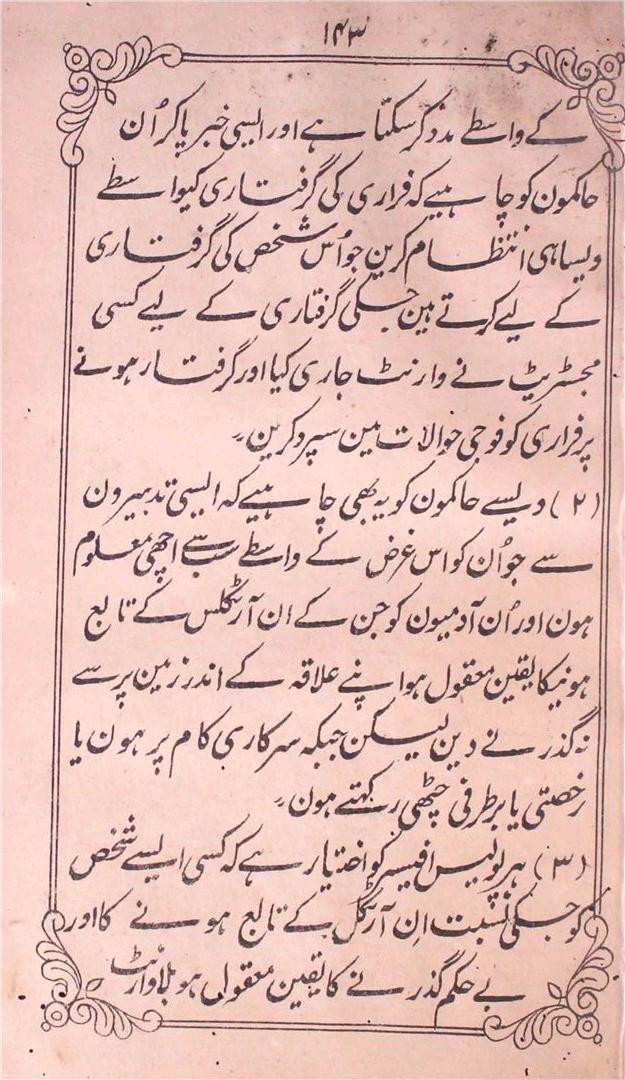 ۱۴۳
کے واسطے مدد کر سکتا ہے اور ایسی خبر پاکر اُن
حاکمون کو چاہیے کہ فراری کی گرفتاری کیواسطے
ویسا ہی انتظام کرین جو اُس شخص کی گرفتاری
کے لیے کرتے ہین جسکی گرفتاری کے لیے کسی
مجسٹریٹ نے وارنٹ جاری کیا اور گرفتار ہونے
پر فراری کو فوجی حوالات مین سپرد کرین۔
(۲) ویسے حاکمون کو یہ بھی چاہیے کہ ایسی تدبیرون
سے جو اُن کو اس غرض کے واسطے سب سے اچھی معلوم
ہون اور اُن آدمیون کو جن کے ان آرٹکلس کے تابع
ہونیکا یقین معقول ہو اپنے علاقہ کے اندر زمین پر سے
نہ گذرنے دین لیکن جبکہ سرکاری کام پر ہون یا
رخصتی یا برطرفی چٹھی رکہتے ہون۔
(۳) ہر پولیس افیسر کو اختیار ہے کہ کسی ایسے شخص
کو جسکی نسبت اِن آرٹکل کے تابع ہونے کا اور
بے حکم گذرنے کا یقین معقول ہو بلا وارنٹ